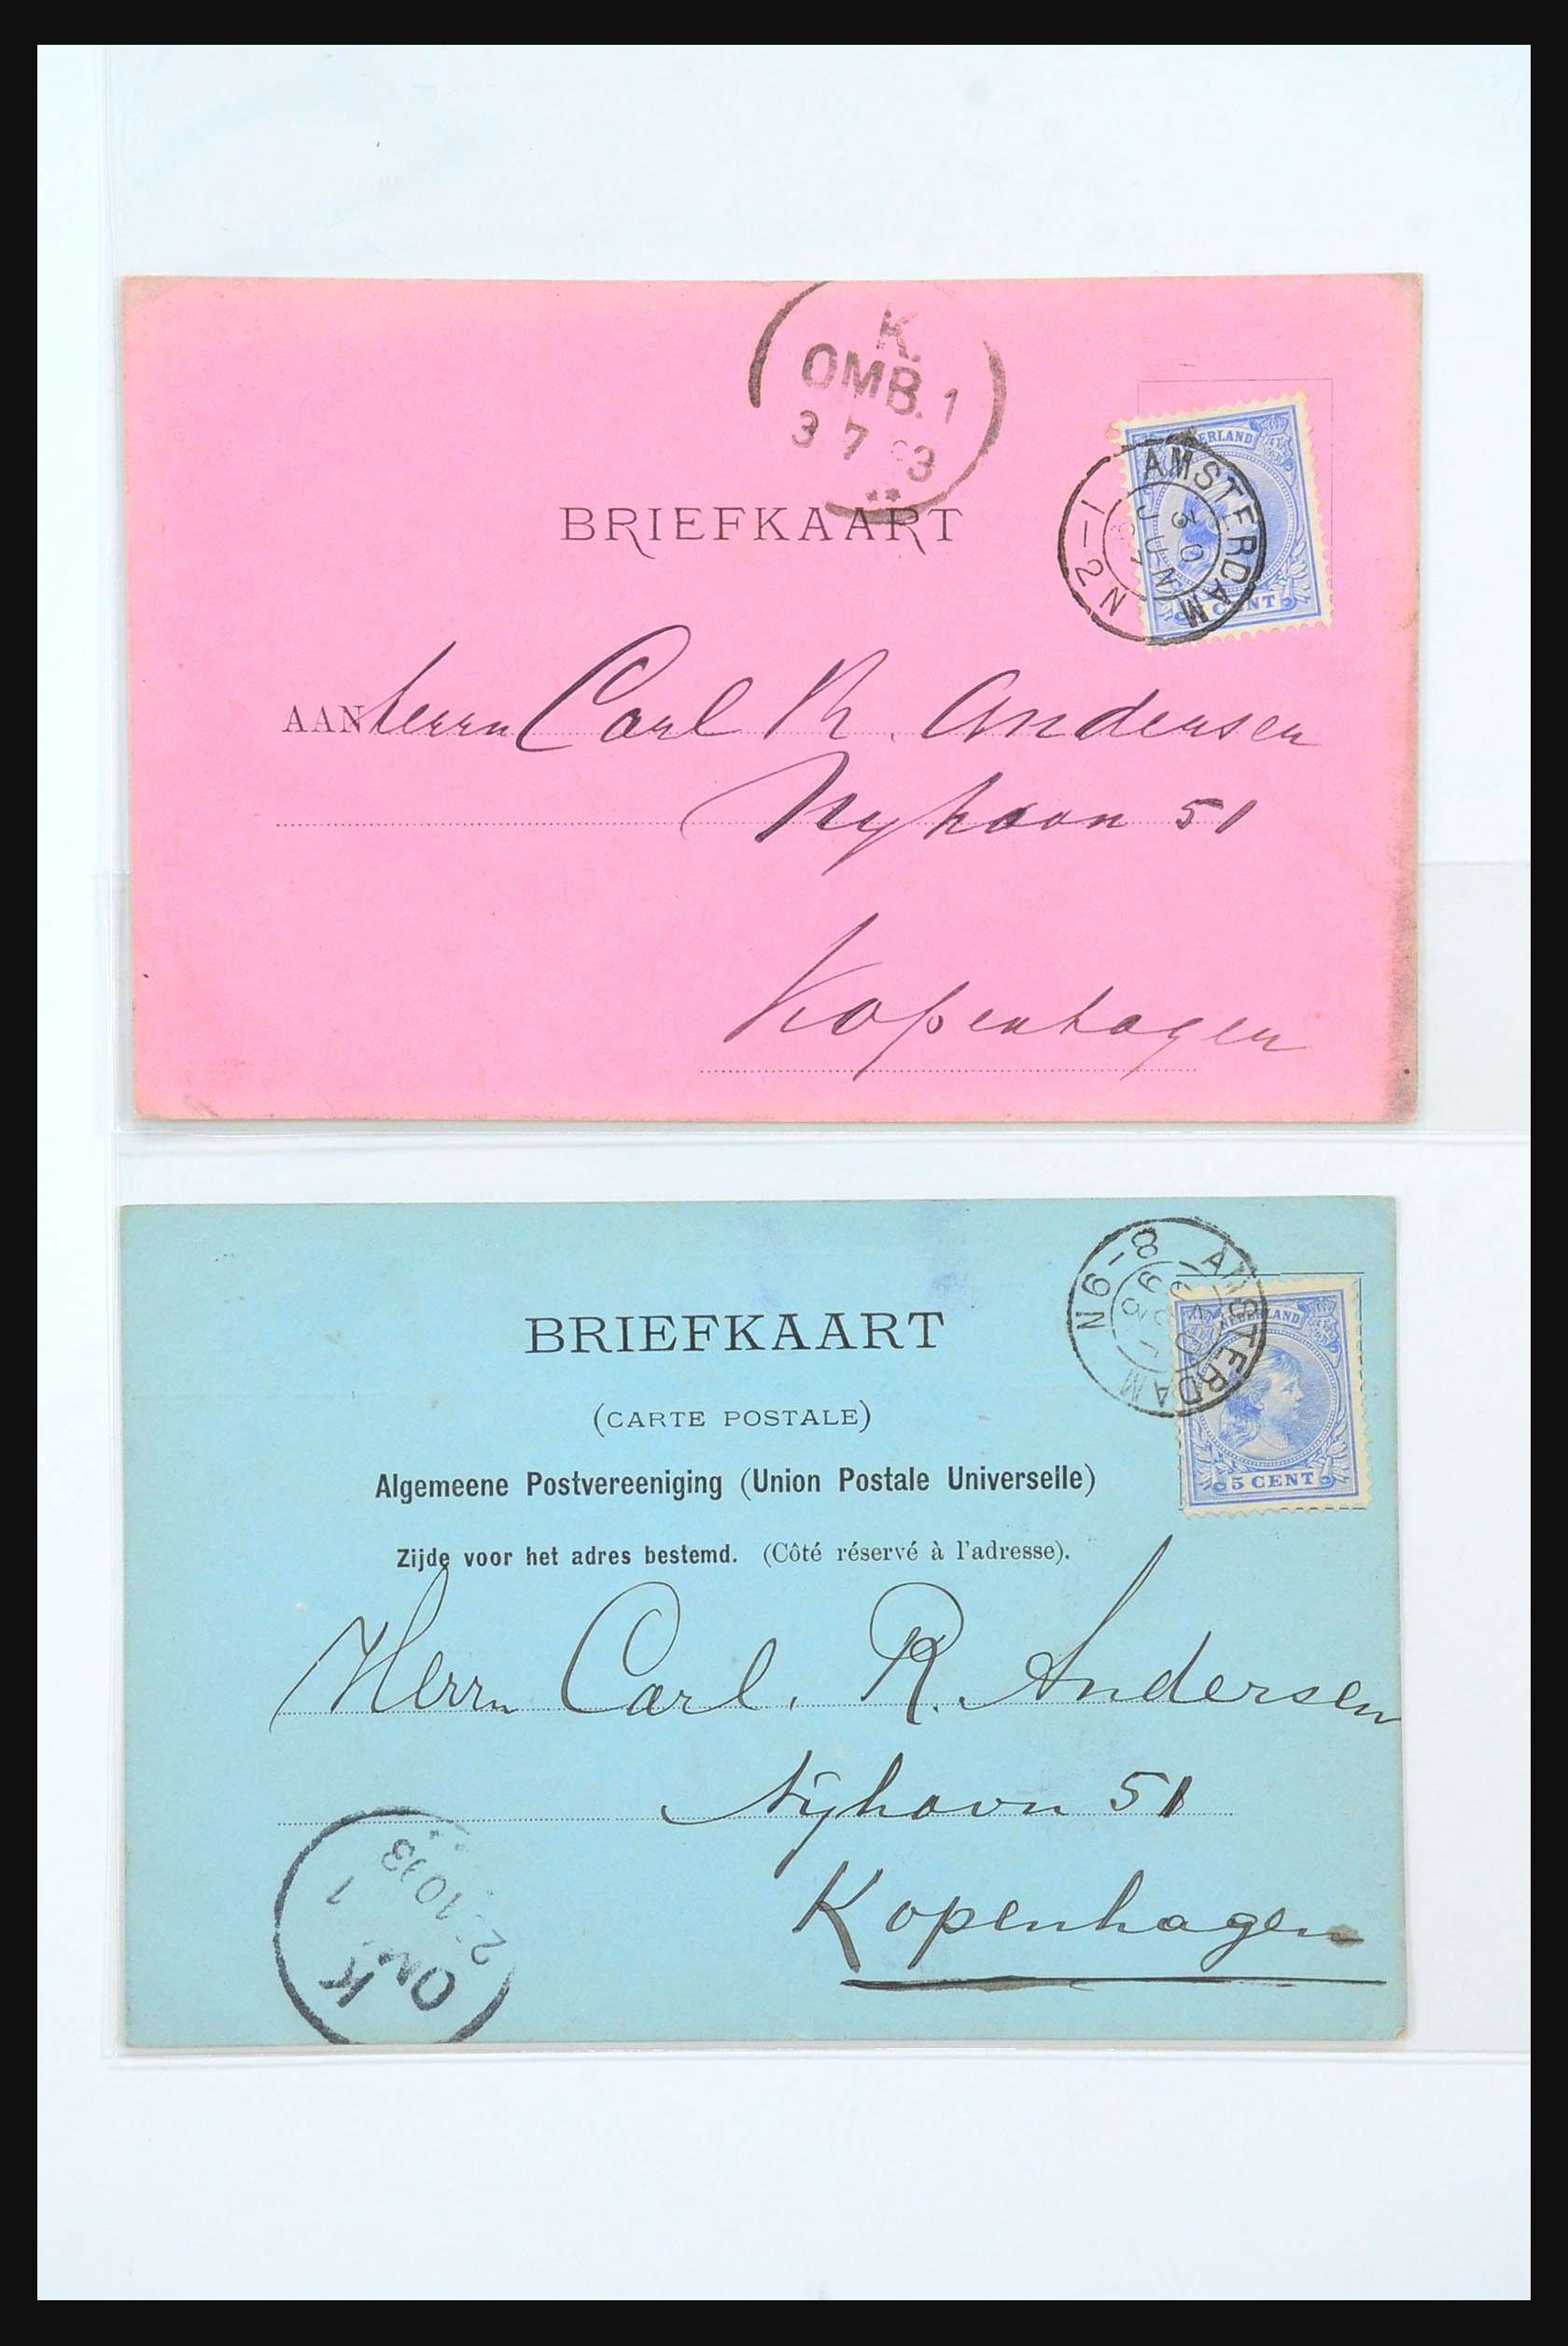 K.
OMB. 1
3 7 3
NEDERLAND
AMSTERDAM
30
JUN
N 2-1
CENT
BRIEFKAART
AAN Herrn Carl R. Andersen
Nyhavn 51
Kopenhagen
AMSTERDAM
93
N 6-8
NEDERLAND
5 CENT
BRIEFKAART
(CARTE POSTALE)
Algemeene Postvereeniging (Union Postale Universelle)
Zijde voor het adres bestemd. (Côté réservé à l'adresse).
Herrn Carl. R. Andersen
Nÿhavn 51
Kopenhagen
K
1
10 93